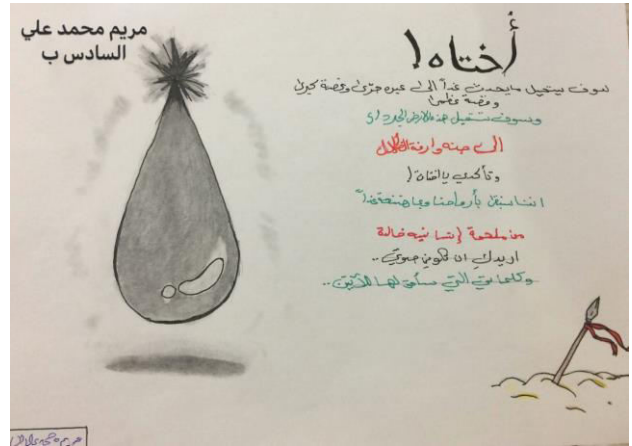 مريم محمد علي
السادس ب
أختاه!
سوف يستحيل ما يحدث غداً الى عبره كبرى
وقصة عظمى
وسوف تستحيل هذه الارض الجرداء
الى جنه وارفة الظلال
وتأكدي يا اختاه!
اننا سنبقى بأرواحنا
من ملحمة إنسانيه خالدة
اريدكِ ان تكوني صوتي..
وكلماتي التي سأمو لها للآتين..